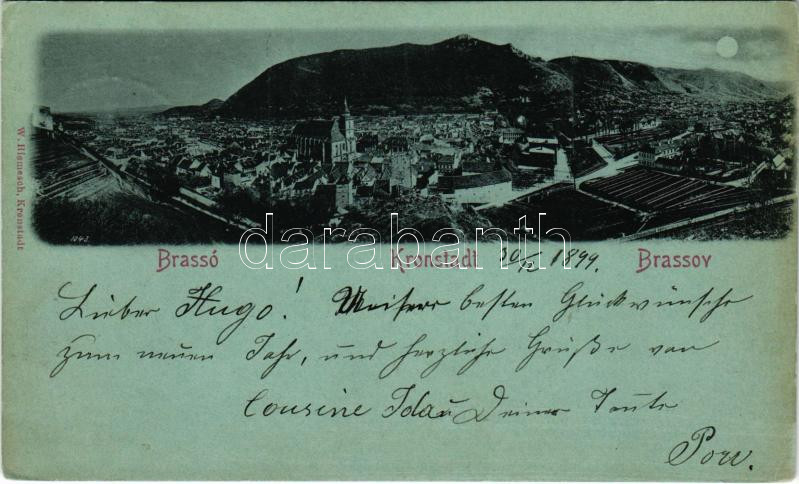 W. Hiemesch, Kronstadt
1043
darabanth
Brassó Kronstadt 30/12 1899. Brassov
Lieber Hugo! Unsere besten Glückwünsche
zum neuen Jahr, und herzliche Grüße von
Cousine Ida u Deiner Tante